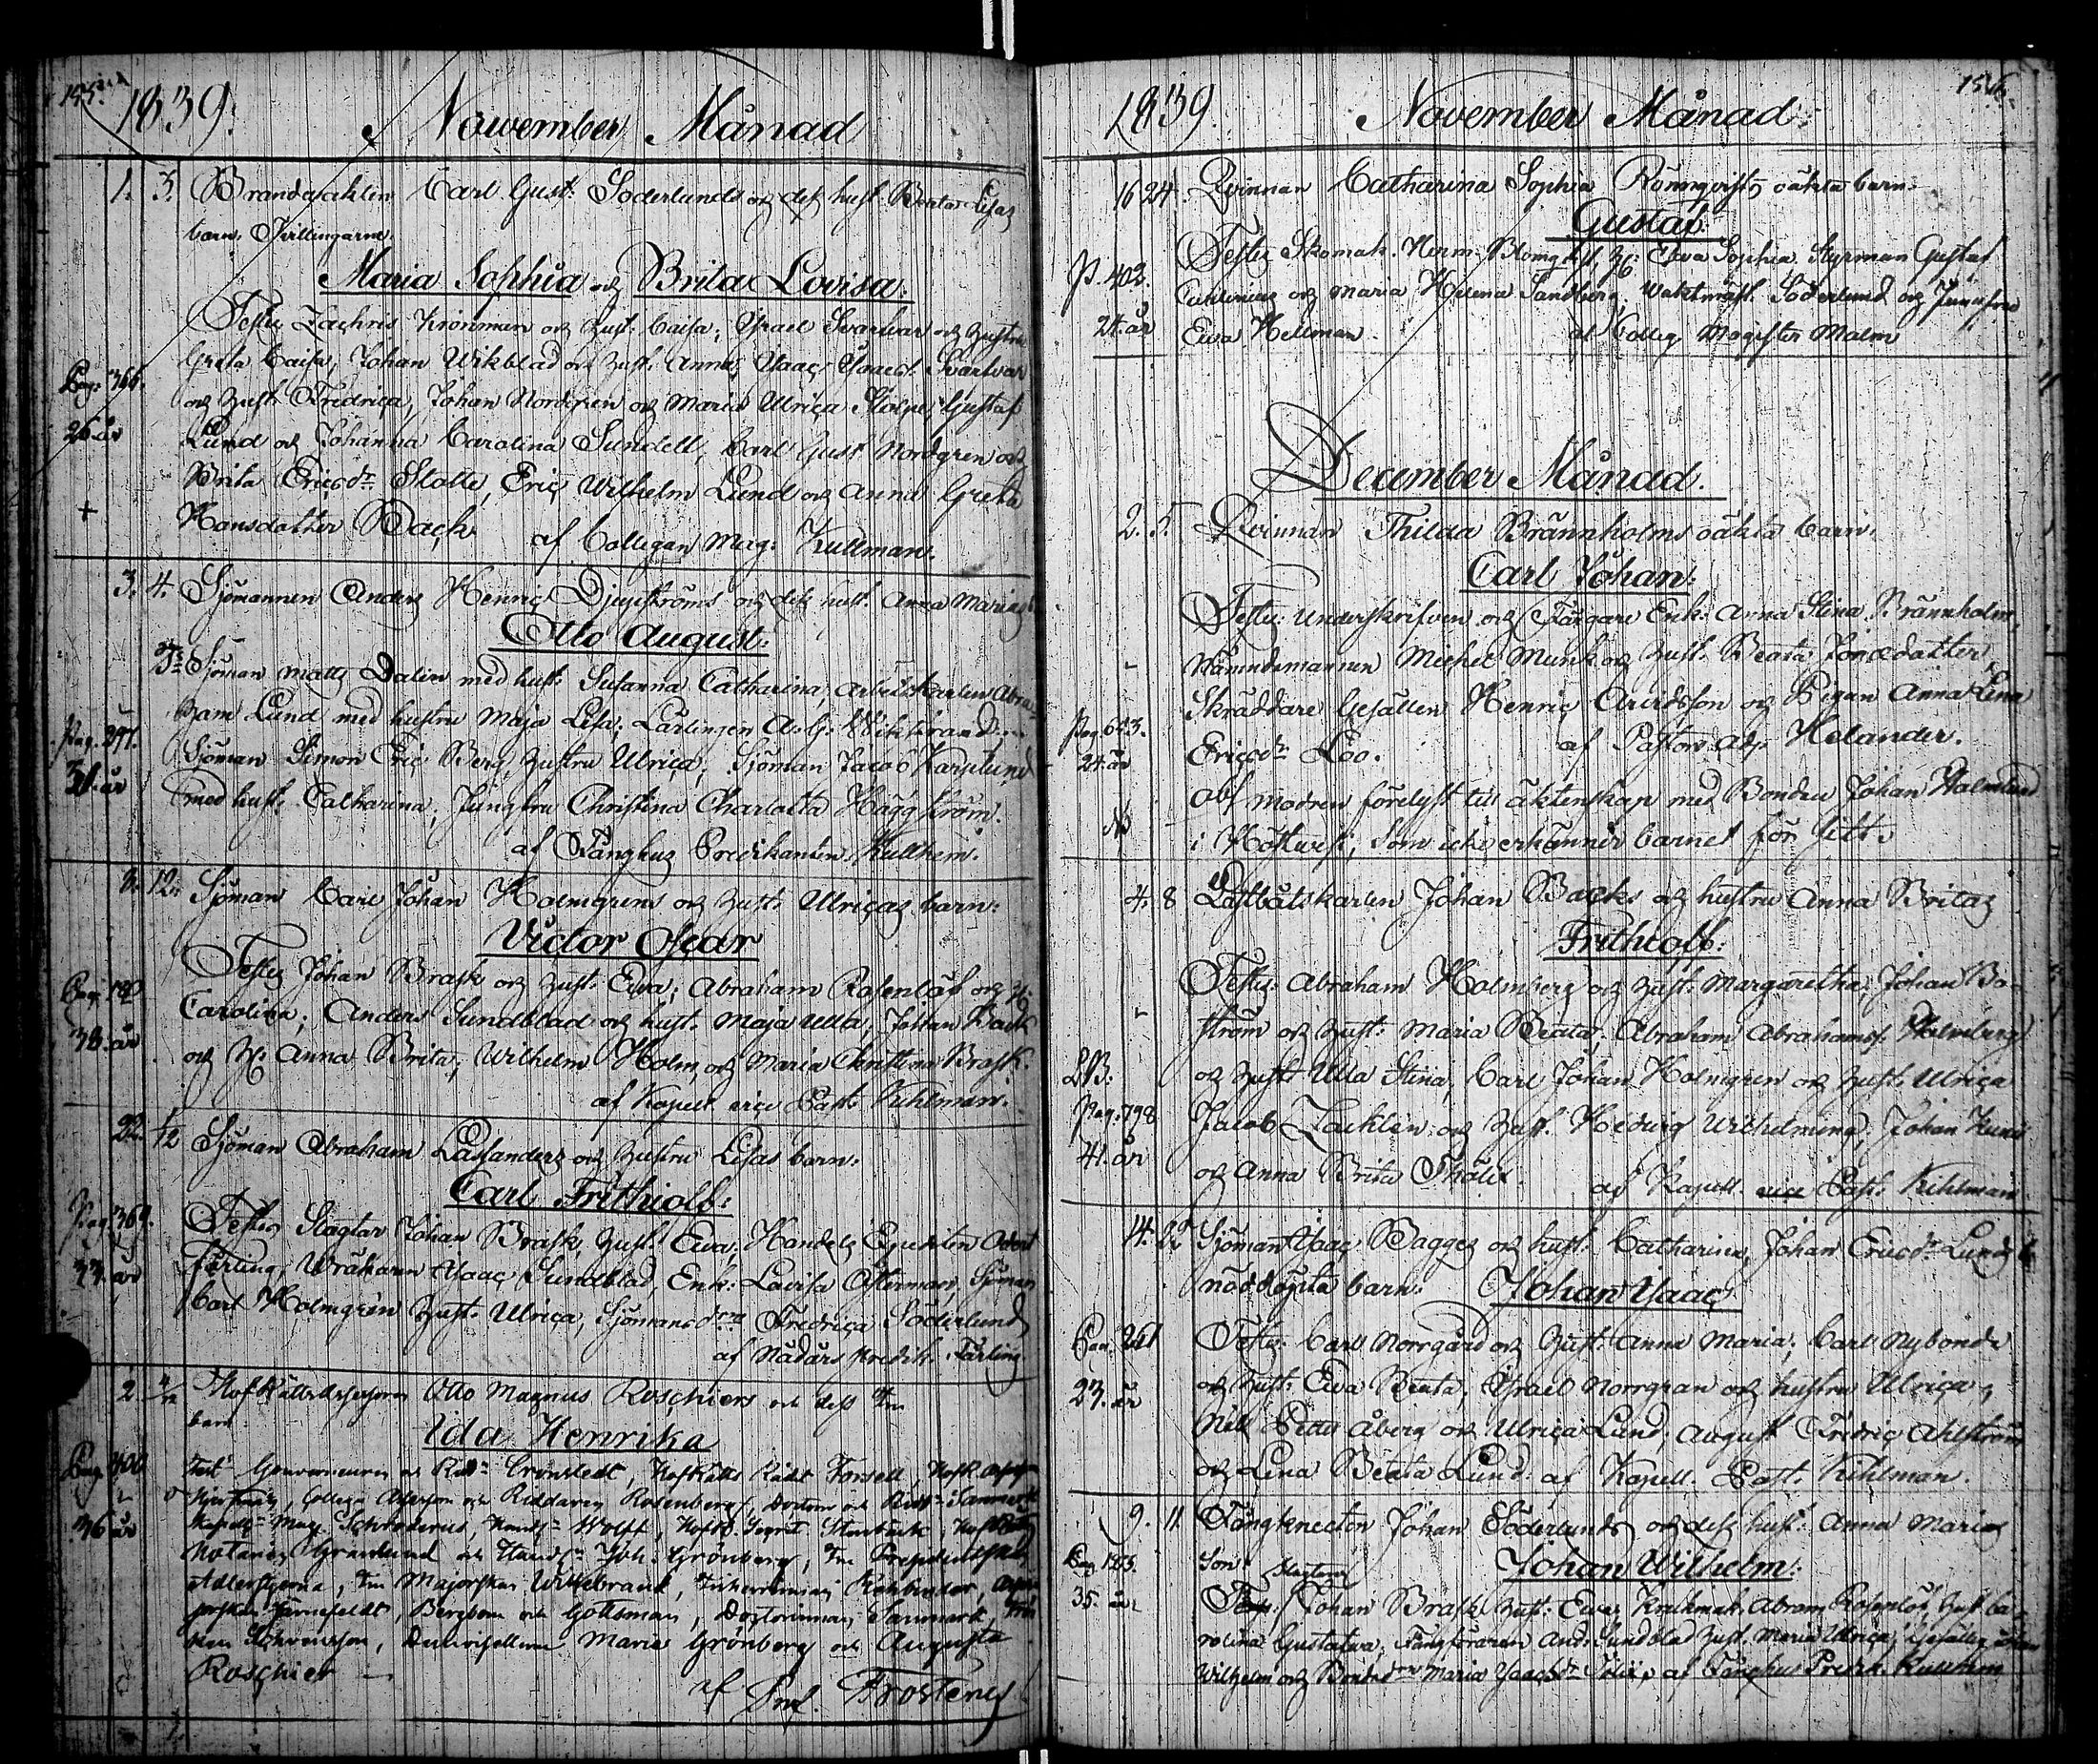 155.
1839.
November Månad
1. 3. Brandvakten Carl Gust: Söderlunds och dess hust. Beata Lisas
barn, Tvillingarne
Maria Sophia och Brita Lovisa.
Testes Zachris Kronman och hust. Caisa; Israel Svartvar och hustru
Greta Caisa, Johan Wikblad och hust. Anna; Isaac Svartvar
Pag: 366.
och hust. Fredrica, Johan Nordgren och Maria Ulrica Stolpe; Gustaf
26 år
Lund och Johanna Carolina Sundell, Carl Gust Nordgren och
Brita Ericsdr Stolle, Eric Wilhelm Lund och Anna Greta
+
Hansdotter Back
af Collegan Mag: Kullman.
3. 4. Sjömannen Anders Henric Djupströms och dess hust. Anna Marias
Otto August:
Ts Sjöman Matts Dalin med hust. Susanna Catharina, Arbetskarlen Abra-
ham Lund med hustru Maja Lisa; Lärlingen A. G. Wikstrand
Pag. 397.
Sjöman Simon Eric Berg, hustru Ulrica; Sjöman Jacob Karslund
31 år
med hust. Catharina; Jungfru Christina Charlotta Häggström.
af Fånghus Predikanten Kullhem.
8. 12. Sjöman Carl Johan Holmgrens och hust. Ulricas barn:
Victor Oscar
Testes Johan Brask och hust. Eva; Abraham Rosenlöf och H:
Carolina; Anders Sundblad och hust. Maja Ulla, Johan Back
38 år
och H: Anna Brita; Wilhelm Holm och Maria Christina Brask.
af Kapell. vice Past: Kihlman.
22. 1/12 Sjöman Abraham och hustru Lisas barn:
Carl Frithioff:
Pag. 369.
Testes Slagtar Johan Brask, hust. Eva; Handels Expediten
33 år
Färling, Isaac Sundblad, Enk: Lovisa Österman, Sjöman
Carl Holmgren hust. Ulrica, Fredrica Söderlund
af Nådårs Predik. Färling.
2. 4/12 Hofrätts Assessoren Otto Magnus Roschiers och dess Fru
barn
Ida Henrika
Pag. 400
Test: Gouverneuren och Ridd. Cronstedt, Hofrätts Rådet Forsell,
och Riddaren Rosenberg, Doctorn och
36 år
Mag. Schroderus, Wolff,
Notarien Granlund och Joh: Grönberg, Fru
Adlerstjerna, Fru Majorskan Willebrand,
Järnefeldt, Bergbom och Gottsman, Doctorinnan Sanmark,
Maria Grönberg och Augusta
Roschier
af Frosterus

156.
1839.
November Månad:
16 24. Qvinnan Catharina Sophia Römqvists oäkta barn.
Gustaf.
P. 402.
Testes Skomak. Herm: Blomqvist, H: Eva Sophia. Styrman Gustaf
och Maria Helena Sandberg; Waktmäst. Söderlund och Jungfru
24. år
Eva Hellman.
af Colleg. Magister Malm
December Månad.
2. 5. Qvinnan Thilda Brännholms oäkta barn.
Carl Johan:
Testes: Underskrifven och Färgare Enk: Anna Stina Brännholm,
Nämndemannen Michel Munk och hust. Beata Jonædotter,
Skräddare Gesällen Henric Arvidsson och Pigan Anna Lena
Pag. 643.
Ericsdr Loo.
af Pastors adj. Helander.
24. år
Obs modren förelyst till äktenskap med Bonden Johan Holmlund
NB
i som icke erkänner barnet för sitt.
4. 8 Lastbåtskarlen Johan Backs och hustru Anna Britas
Frithioff:
Testes: Abraham Holmberg och hust. Margaretha; Johan Bo-
ström och hust. Maria Beata; Abraham Abrahamss. Holmberg
LB.
och hust. Ulla Stina; Carl Johan Holmgren och hust. Ulrica
Pag. 798
Jacob Lacklin och hust. Hedvig Wilhelmina; Johan
41. år
och Anna Brita Thölix.
af Kapell. vice Past. Kihlman
14. 22 Sjöman Isaac Bagges och hust. Catharina, Johan Ericsdr Lunds
nöddöpta barn.
Johan Isaac
Pag. 261
Testes: Carl Norrgård och hust. Anna Maria; Carl Nybonde
23. år
och hust. Eva Beata; Israel Norrgran och hustru Ulrica,
Nils Petter Åberg och Ulrica Lund; August Fredric Ahlström
och Lena Beata Lund. af Kapell. Past. Kihlman.
9. 11. Fångknecten Johan Söderlunds och dess hust. Anna Marias
Son.
Johan Wilhelm:
35. år
Slagtaren
Test: Johan Brask hust. Eva; Abram Rosenlöf, hust. Ca-
rolina Gustafva; Fångföraren And: Sundblad hust. Maria Ulrica;
Wilhelm och Maria Isacsdr af Fånghus Predik. Kullhem